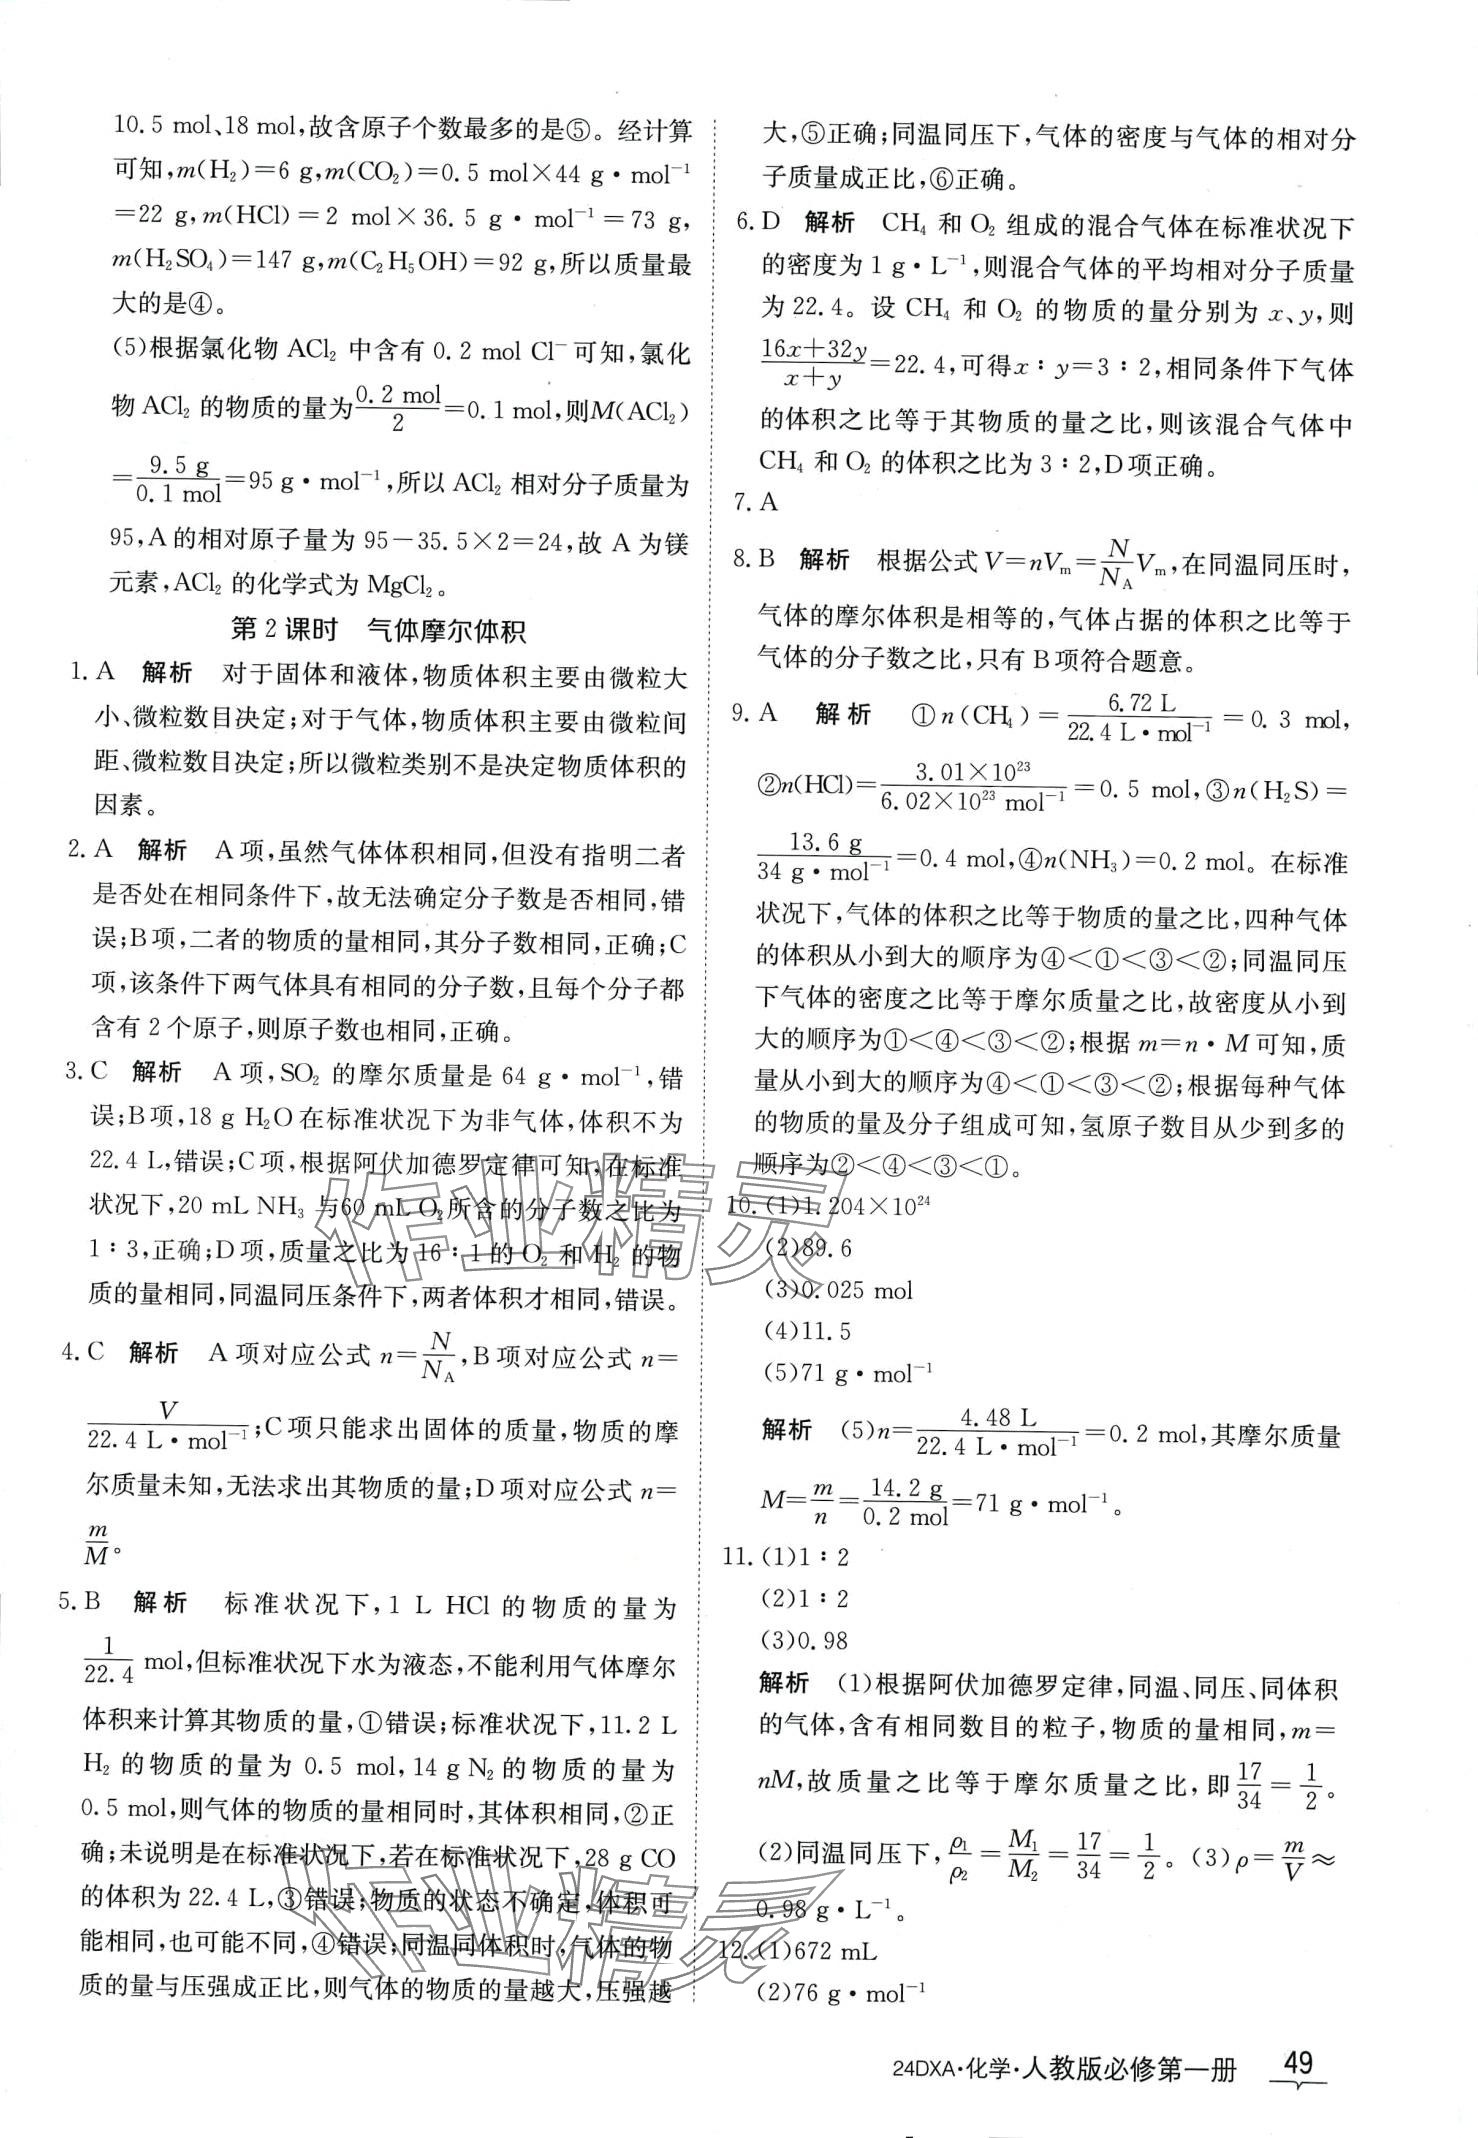 10.5 mol、18 mol,故含原子个数最多的是⑤。经计算
可知,m(H₂)=6 g,m(CO₂)=0.5 mol×44 g·mol⁻¹
=22 g,m(HCl)=2 mol×36.5 g·mol⁻¹=73 g,
m(H₂SO₄)=147 g,m(C₂H₅OH)=92 g,所以质量最
大的是④。
(5)根据氯化物 ACl₂ 中含有 0.2 mol Cl⁻可知,氯化
物 ACl₂ 的物质的量为0.2 mol/2=0.1 mol,则M(ACl₂)
=9.5 g/0.1 mol=95 g·mol⁻¹,所以 ACl₂ 相对分子质量为
95,A的相对原子量为 95-35.5×2=24,故 A 为镁
元素,ACl₂ 的化学式为 MgCl₂。
第2课时 气体摩尔体积
1. A 解析 对于固体和液体,物质体积主要由微粒大
小、微粒数目决定;对于气体,物质体积主要由微粒间
距、微粒数目决定;所以微粒类别不是决定物质体积的
因素。
2. A 解析 A项,虽然气体体积相同,但没有指明二者
是否处在相同条件下,故无法确定分子数是否相同,错
误;B项,二者的物质的量相同,其分子数相同,正确;C
项,该条件下两气体具有相同的分子数,且每个分子都
含有2个原子,则原子数也相同,正确。
3. C 解析 A项,SO₂ 的摩尔质量是 64 g·mol⁻¹,错
误;B项,18 g H₂O在标准状况下为非气体,体积不为
22.4 L,错误;C项,根据阿伏加德罗定律可知,在标准
状况下,20 mL NH₃ 与60 mL O₂所含的分子数之比为
1∶3,正确;D项,质量之比为16∶1的O₂ 和 H₂ 的物
质的量相同,同温同压条件下,两者体积才相同,错误。
4. C 解析 A项对应公式 n=N/N_A,B项对应公式 n=
V/22.4 L·mol⁻¹;C项只能求出固体的质量,物质的摩
尔质量未知,无法求出其物质的量;D项对应公式 n=
m/M。
5. B 解析 标准状况下,1 L HCl 的物质的量为
1/22.4 mol,但标准状况下水为液态,不能利用气体摩尔
体积来计算其物质的量,①错误;标准状况下,11.2 L
H₂ 的物质的量为 0.5 mol,14 g N₂ 的物质的量为
0.5 mol,则气体的物质的量相同时,其体积相同,②正
确;未说明是在标准状况下,若在标准状况下,28 g CO
的体积为22.4 L,③错误;物质的状态不确定,体积可
能相同,也可能不同,④错误;同温同体积时,气体的物
质的量与压强成正比,则气体的物质的量越大,压强越
大,⑤正确;同温同压下,气体的密度与气体的相对分
子质量成正比,⑥正确。
6. D 解析 CH₄ 和 O₂ 组成的混合气体在标准状况下
的密度为1 g·L⁻¹,则混合气体的平均相对分子质量
为22.4。设 CH₄ 和 O₂ 的物质的量分别为 x、y,则
16x+32y/x+y=22.4,可得x∶y=3∶2,相同条件下气体
的体积之比等于其物质的量之比,则该混合气体中
CH₄ 和 O₂ 的体积之比为 3∶2,D项正确。
7. A
8. B 解析 根据公式V=nVₘ=N/N_A Vₘ,在同温同压时,
气体的摩尔体积是相等的,气体占据的体积之比等于
气体的分子数之比,只有B项符合题意。
9. A 解析 ①n(CH₄)=6.72 L/22.4 L·mol⁻¹=0.3 mol,
②n(HCl)=3.01×10²³/6.02×10²³ mol⁻¹=0.5 mol,③n(H₂S)=
13.6 g/34 g·mol⁻¹=0.4 mol,④n(NH₃)=0.2 mol。在标准
状况下,气体的体积之比等于物质的量之比,四种气体
的体积从小到大的顺序为④<①<③<②;同温同压
下气体的密度之比等于摩尔质量之比,故密度从小到
大的顺序为①<④<③<②;根据 m=n·M 可知,质
量从小到大的顺序为④<①<③<②;根据每种气体
的物质的量及分子组成可知,氢原子数目从少到多的
顺序为②<④<③<①。
10. (1)1.204×10²⁴
(2)89.6
(3)0.025 mol
(4)11.5
(5)71 g·mol⁻¹
解析 (5)n=4.48 L/22.4 L·mol⁻¹=0.2 mol,其摩尔质量
M=m/n=14.2 g/0.2 mol=71 g·mol⁻¹。
11. (1)1∶2
(2)1∶2
(3)0.98
解析 (1)根据阿伏加德罗定律,同温、同压、同体积
的气体,含有相同数目的粒子,物质的量相同,m=
nM,故质量之比等于摩尔质量之比,即17/34=1/2。
(2)同温同压下,ρ₁/ρ₂=M₁/M₂=17/34=1/2。(3)ρ=m/V≈
0.98 g·L⁻¹。
12. (1)672 mL
(2)76 g·mol⁻¹
作业精灵
作业精灵
24DXA·化学·人教版必修第一册 49